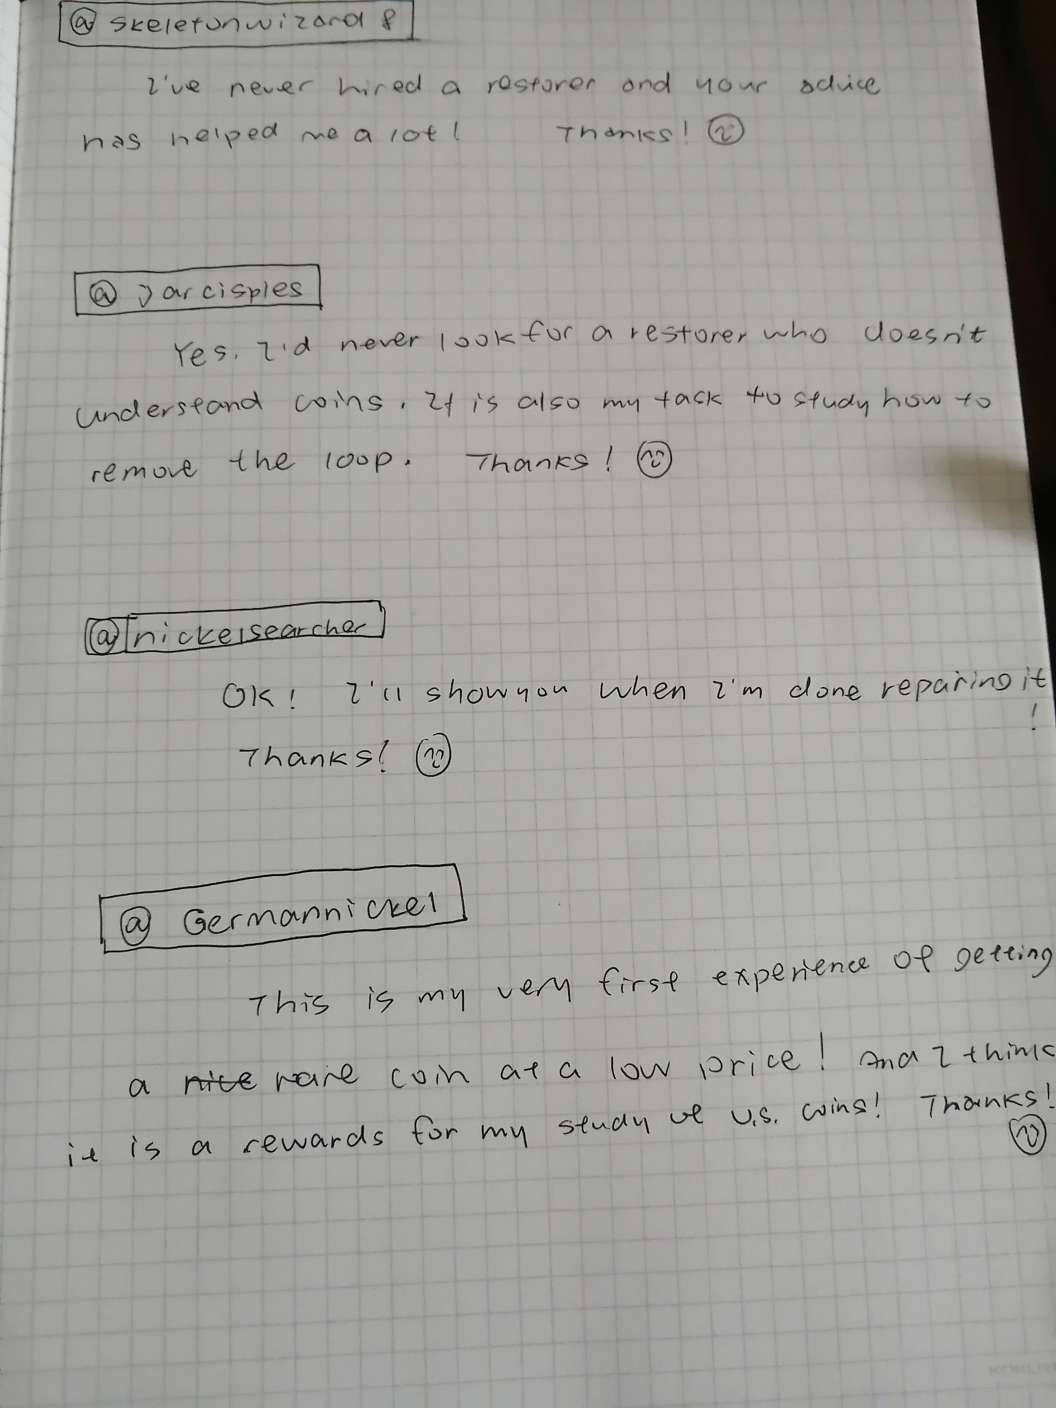 @ skeletonwizard 8
I've never hired a restorer and your advice
has helped me a lot! Thanks!
@ jarcispies
Yes. I'd never look for a restorer who doesn't
understand coins. It is also my tack to study how to
remove the loop. Thanks!
@nickelsearcher
OK! I'll show you when I'm done reparing it
!
Thanks!
@ Germannickel
This is my very first experience of getting
a nice rare coin at a low price! And I think
it is a rewards for my study of U.S. coins! Thanks!